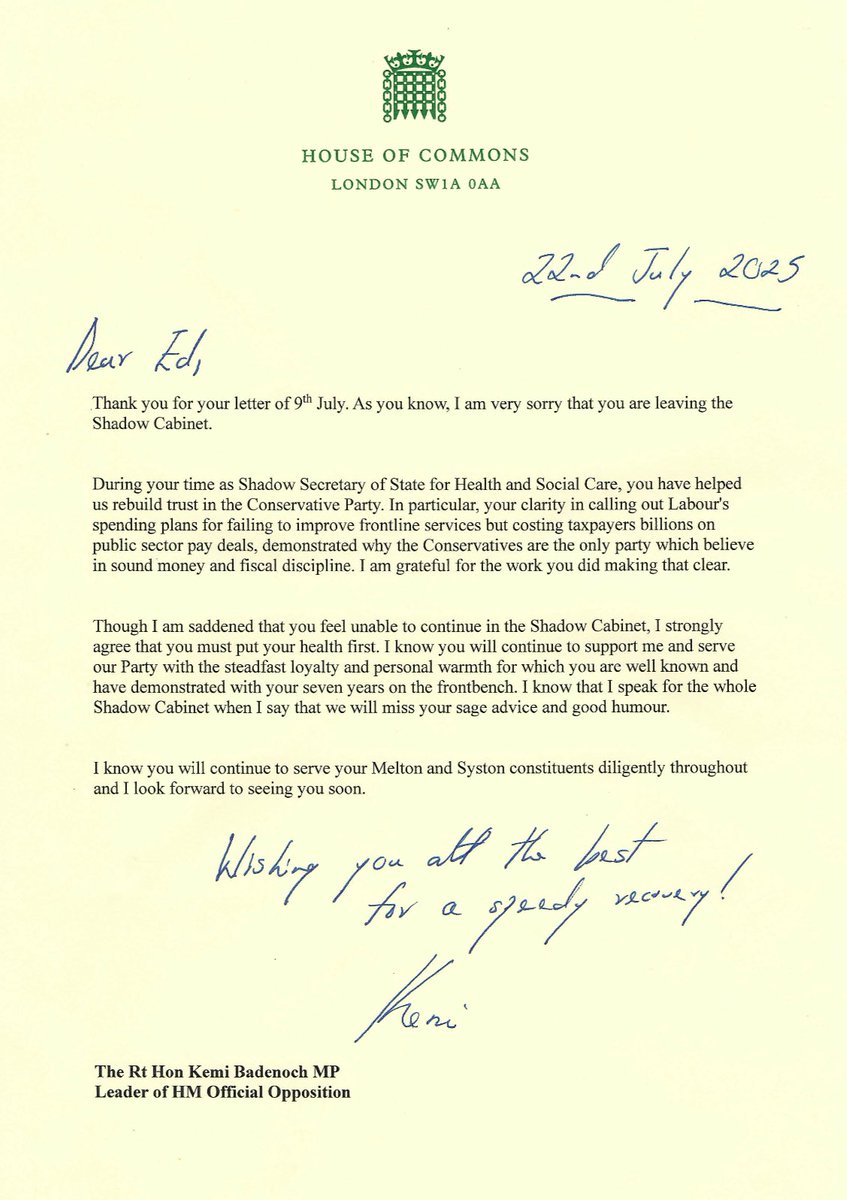 HOUSE OF COMMONS
LONDON SW1A 0AA
22nd July 2025
Dear Ed,
Thank you for your letter of 9th July. As you know, I am very sorry that you are leaving the
Shadow Cabinet.
During your time as Shadow Secretary of State for Health and Social Care, you have helped
us rebuild trust in the Conservative Party. In particular, your clarity in calling out Labour's
spending plans for failing to improve frontline services but costing taxpayers billions on
public sector pay deals, demonstrated why the Conservatives are the only party which believe
in sound money and fiscal discipline. I am grateful for the work you did making that clear.
Though I am saddened that you feel unable to continue in the Shadow Cabinet, I strongly
agree that you must put your health first. I know you will continue to support me and serve
our Party with the steadfast loyalty and personal warmth for which you are well known and
have demonstrated with your seven years on the frontbench. I know that I speak for the whole
Shadow Cabinet when I say that we will miss your sage advice and good humour.
I know you will continue to serve your Melton and Syston constituents diligently throughout
and I look forward to seeing you soon.
Wishing you all the best
for a speedy recovery!
Kemi
The Rt Hon Kemi Badenoch MP
Leader of HM Official Opposition